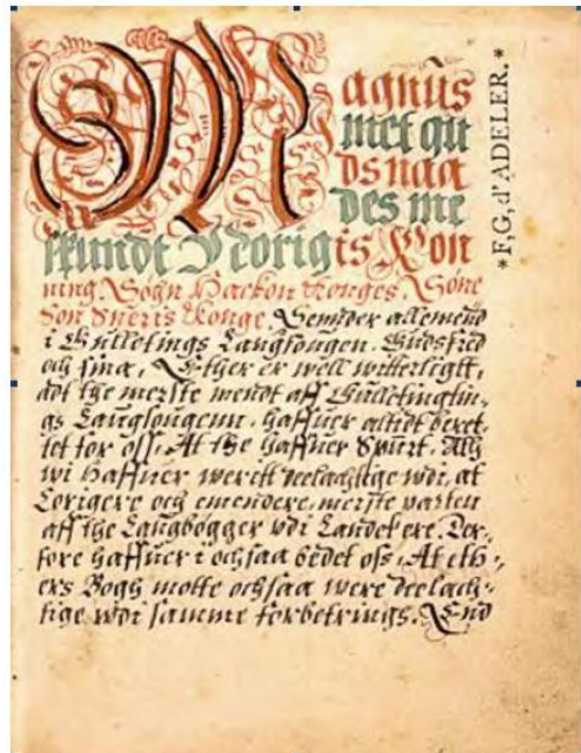 Magnus
met gu
ds naa
des me
skundt Norigis Kon
ning. Søgn Hackon Konges. Søne
Søn Sueris Konge. Sennder allemend
i Gulletings Laugsougen. Gudsfred
och sina, Ether er well witterligtt,
adt the merste mendt aff Gulletingtin-
gs Laugsougenn, haffuer altidt beret-
tet for oss, At the haffuer Spurt. Ath
wi haffuer weritt deelachtige wdi, at
Corigere och emendere, merste parten
aff the Laugbøgger wdi Landet ere. Der-
fore haffuer i ochsaa bedet oss, At eth-
ers Bogh motte ochsaa were deelach-
tige wdi samme forbetrings. End
*F,G, d'ADELER.*